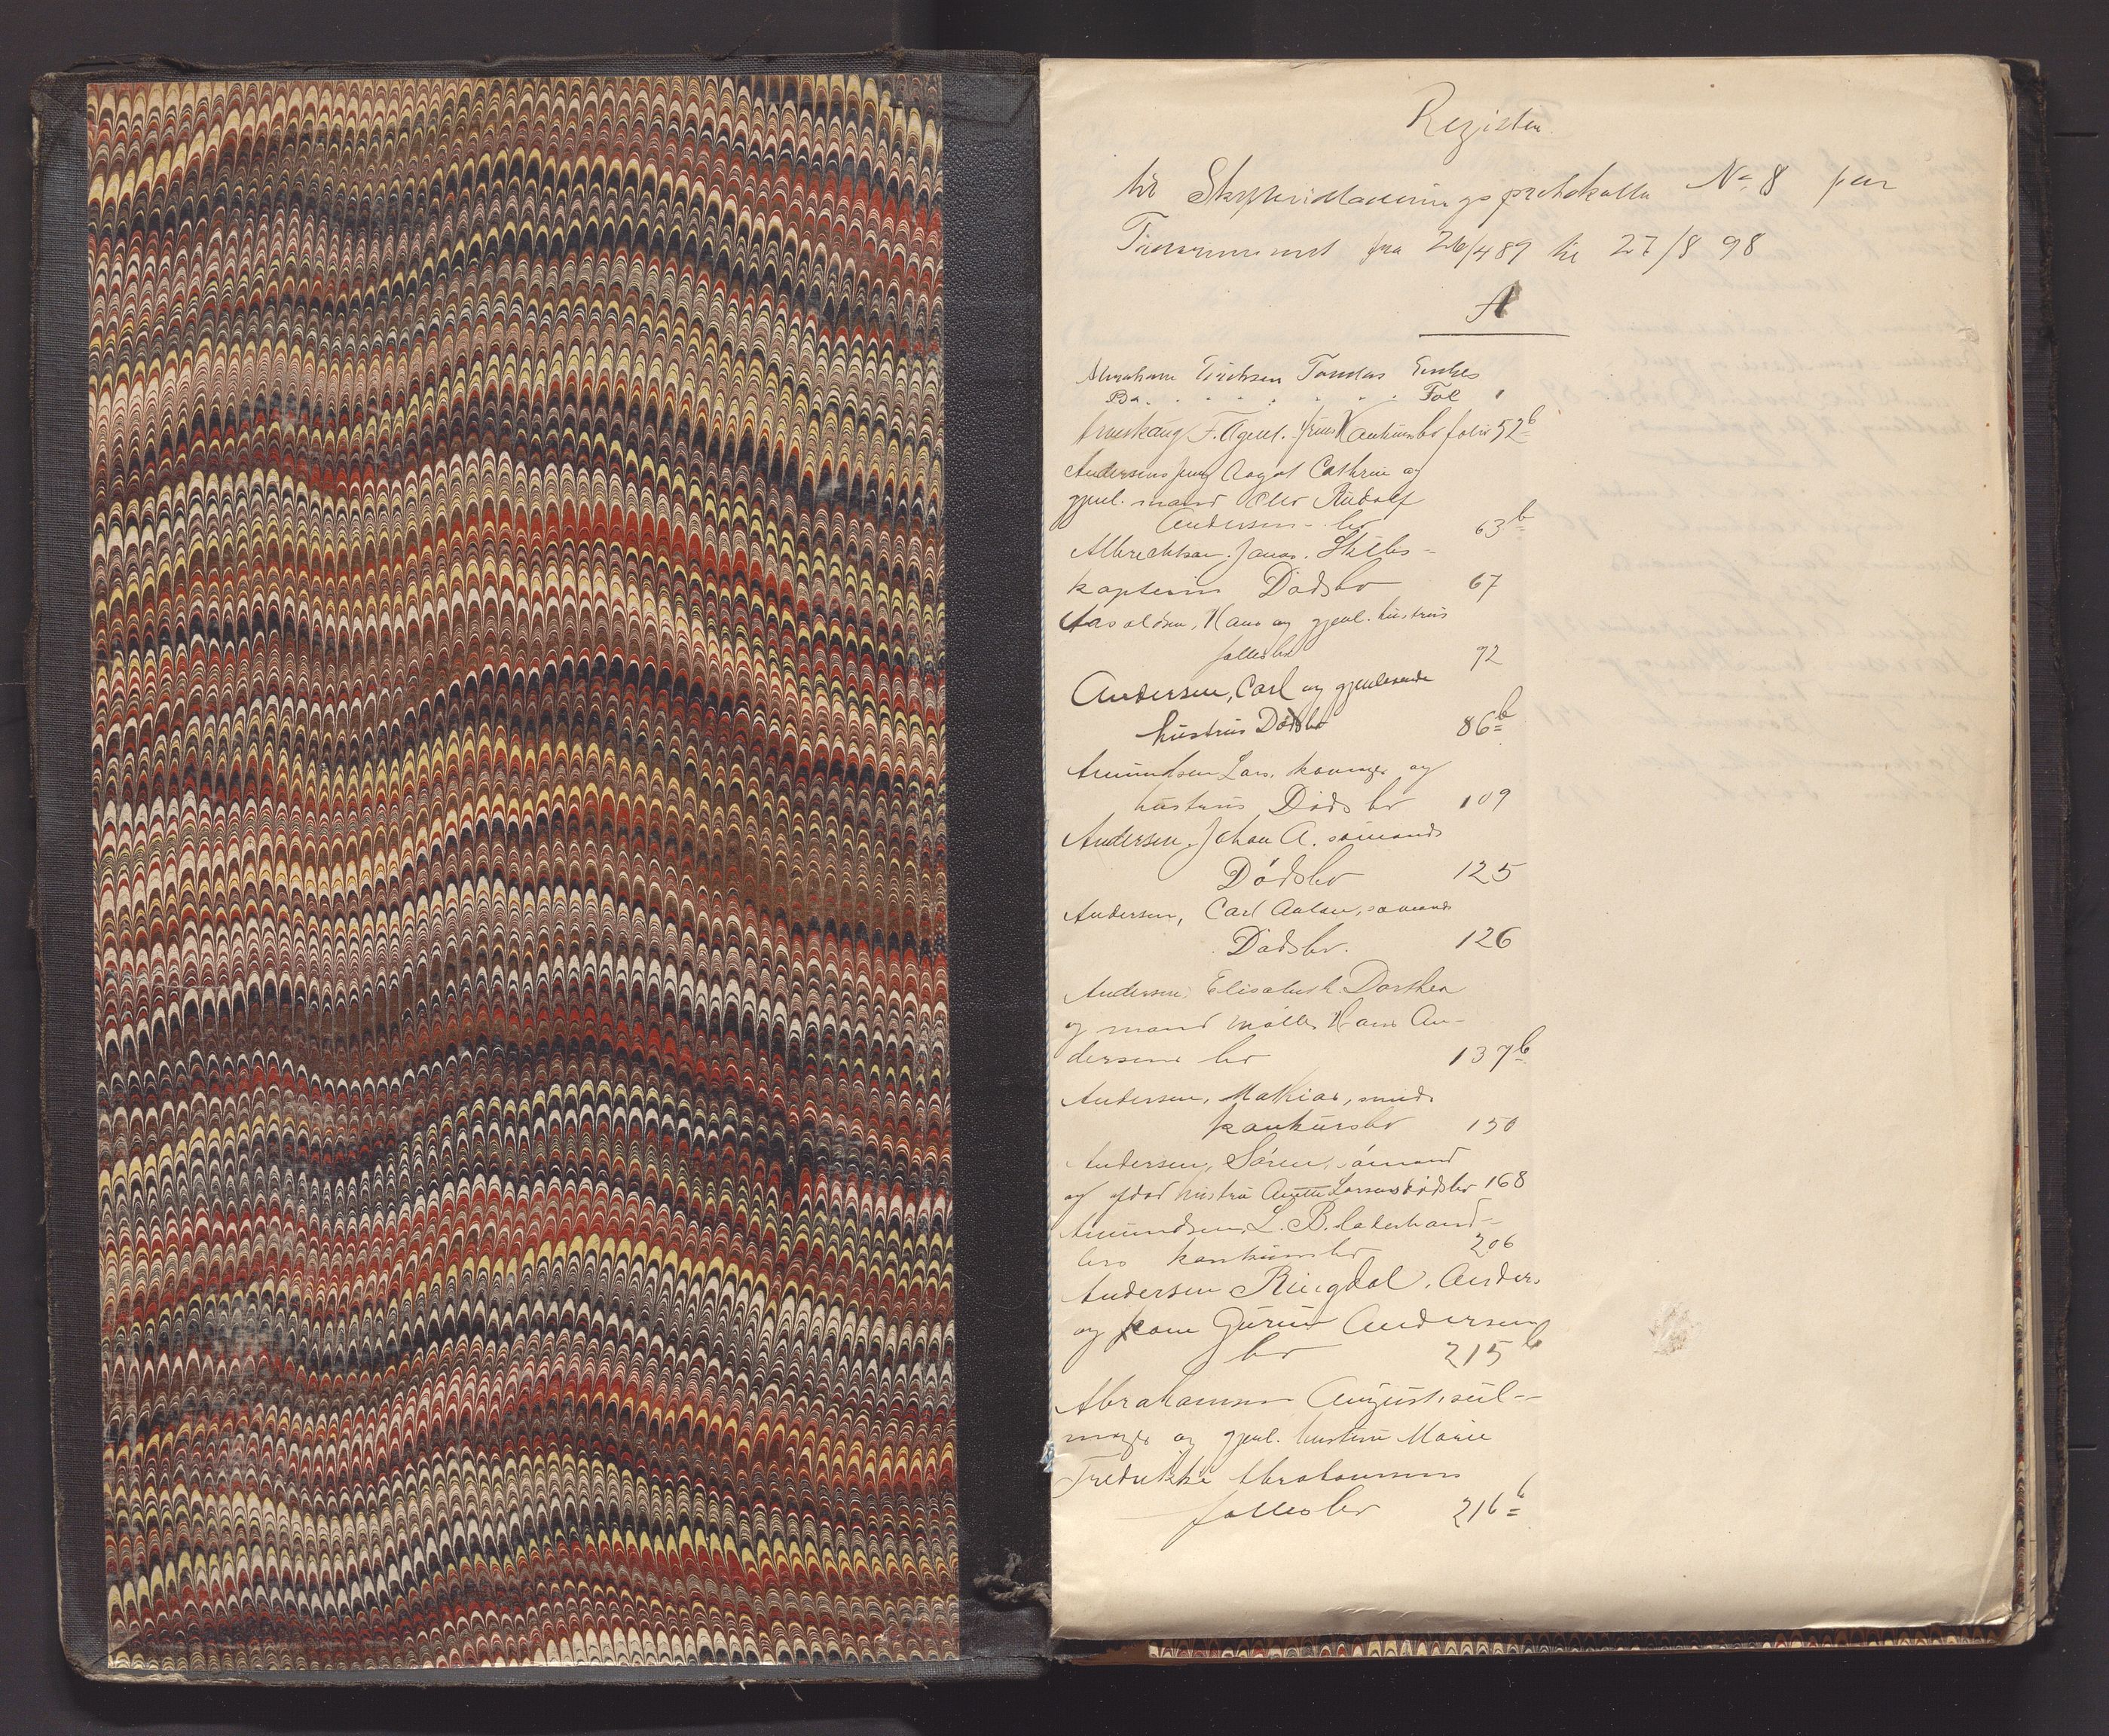 Register
til Skifteudlodningsprotokollen No 8 for
fra 26/4 89 til 27/8 98
A
Abraham Erichsen Enkes
Bo . . . . . . . . Fol 1
F. Agent. Konkursbo folio 52b
Andersens Aagot Cathrine og
gjenl. mand Rudolf
Andersens bo 63b
Albrechtsen. Jonas. Skibs-
kapteins Dødsbo 67
Hans og gjenl. hustrus
fællesbo 72
Andersen, Carl og gjenlevende
hustrus Dødsbo 86b
Amundsen Lars, og
hustrus Dødsbo 109
Andersen, Johan A. sømands
Dødsbo 125
Andersen, Carl Anton, sømands
Dødsbo. 126
Andersen, Elisabeth Dorthea
og mand Møller Hans An-
dersens bo 137b
Andersen, Mathias, smeds
konkursbo 150
Andersen, Søren, sømand
og afdød hustru Anette Larsens dødsbo 168
Amundsen, L. B.
lers konkursbo 206
Andersen Ringdal, Anders
og kone Gurine Andersens
bo 215b
Abrahamsen August, seil-
mager og gjenl. hustru Marie
Fredrikke Abrahamsens
fællesbo 216b